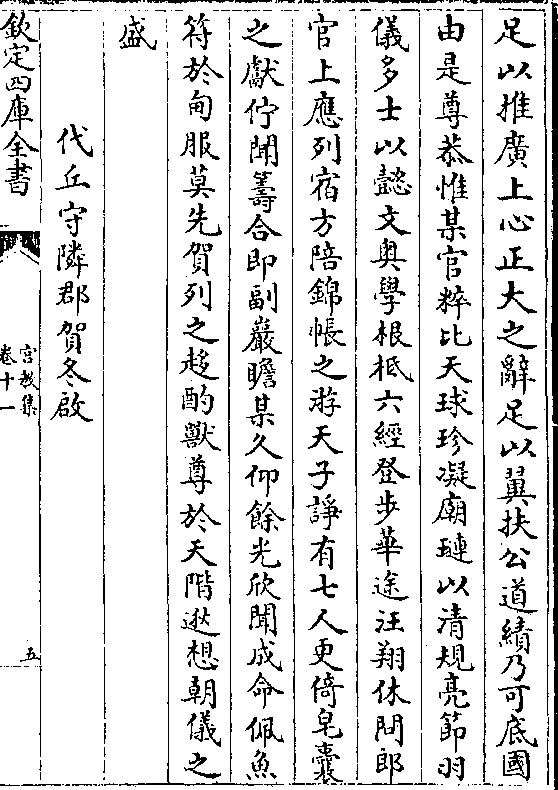 足以推廣上心正大之辭足以翼扶公道績乃可底國
由是尊恭惟某官粹比天球珍凝廟璉以清規亮節羽
儀多士以懿文奥學根柢六經登步華途汪翔休問郎
官上應列宿方陪錦帳之游天子諍有七人更倚皂囊
之獻佇聞籌合即副巖瞻某久仰餘光欣聞成命佩魚
符於甸服莫先賀列之趍酌獸尊於天階逖想朝儀之
盛
代丘守隣郡賀冬啟
欽定四庫全書
宫教集
卷十一
五